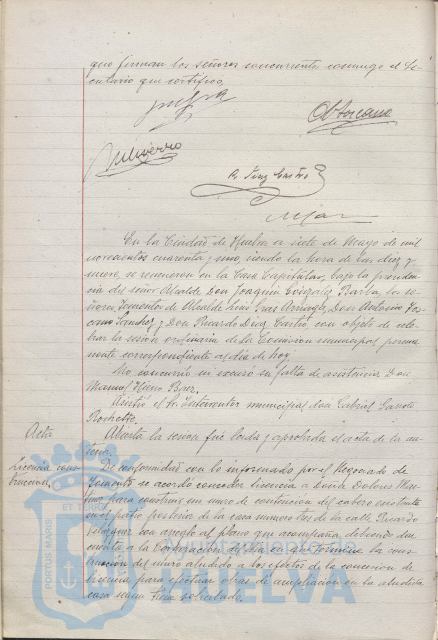 que firman los señores concurrentes conmigo el Se-
cretario que certifico.
R. Diaz Castro
En la Ciudad de Huelva a siete de Mayo de mil
novecientos cuarenta y uno, siendo la hora de las diez y
nueve, se reunieron en la Casa Capitular, bajo la presiden-
cia del señor Alcalde Don Joaquin Gonzalez Barba, los se-
ñores Tenientes de Alcalde Don Antonio
Sanchez y Don Ricardo Diaz Castro con objeto de cele-
brar la sesión ordinaria de la Comision municipal perma-
nente correspondiente al dia de hoy.
No concurrió ni excusó su falta de asistencia Don
Manuel Baez.
Asistió el Sr. Interventor municipal don Gabriel
Acta Abierta la sesion fué leida y aprobada el acta de la an-
terior.
Licencia cons-
trucciones. De conformidad con lo informado por el Negociado de
Fomento se acordó conceder licencia a Doña Dolores
para construir un muro de contención del cabezo existente
en el patio posterior de la casa numero tres de la calle Ricardo
Velazquez con arreglo al plano que acompaña, debiendo dar
cuenta a la Corporacion del dia en que termine la cons-
trucción del muro aludido a los efectos de la concesion de
licencia para efectuar obras de ampliacion en la aludida
casa segun tiene solicitado.
ET TERRA
PORTUS MARIS
HUELVA